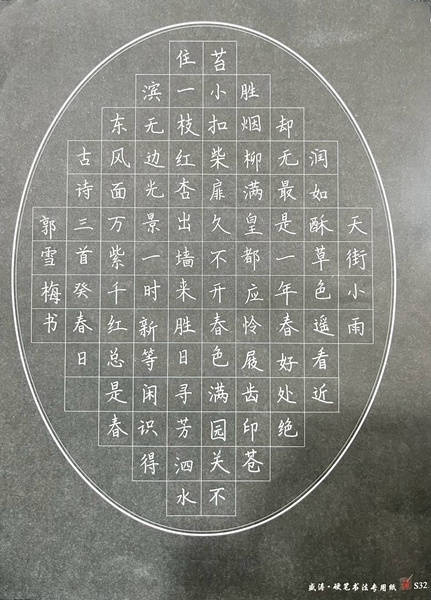 天街小雨
润如酥草色遥看近
却无最是一年春好处绝
胜烟柳满皇都应怜屐齿印苍
苔小扣柴扉久不开春色满园关不
住一枝红杏出墙来胜日寻芳泗水
滨无边光景一时新等闲识得
东风面万紫千红总是春
古诗三首癸春日
郭雪梅书
硬笔书法专用纸 S32